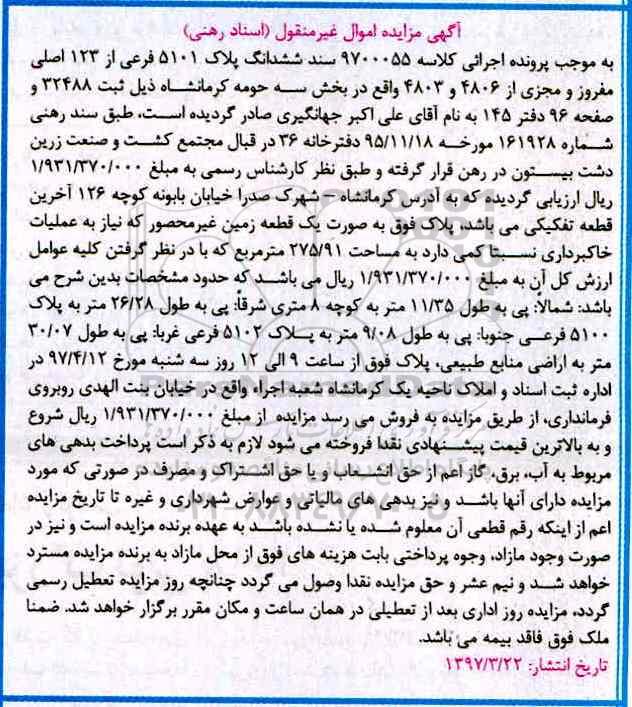 آگهی مزایده اموال غیرمنقول (اسناد رهنی)
به موجب پرونده اجرائی کلاسه ۹۷۰۰۰۵۵ سند ششدانگ پلاک ۵۱۰۱ فرعی از ۱۲۳ اصلی
مفروز و مجزی از ۴۸۰۶ و ۴۸۰۳ واقع در بخش سه حومه کرمانشاه ذیل ثبت ۳۲۴۸۸ و
صفحه ۹۶ دفتر ۱۴۵ به نام آقای علی اکبر جهانگیری صادر گردیده است، طبق سند رهنی
شماره ۱۶۱۹۲۸ مورخه ۹۵/۱۱/۱۸ دفترخانه ۳۶ در قبال مجتمع کشت و صنعت زرین
دشت بیستون در رهن قرار گرفته و طبق نظر کارشناس رسمی به مبلغ ۱/۹۳۱/۳۷۰/۰۰۰
ریال ارزیابی گردیده که به آدرس کرمانشاه – شهرک صدرا خیابان بابونه کوچه ۱۲۶ آخرین
قطعه تفکیکی می باشد، پلاک فوق به صورت یک قطعه زمین غیرمحصور که نیاز به عملیات
خاکبرداری نسبتا کمی دارد به مساحت ۲۷۵/۹۱ مترمربع که با در نظر گرفتن کلیه عوامل
ارزش کل آن به مبلغ ۱/۹۳۱/۳۷۰/۰۰۰ ریال می باشد که حدود مشخصات بدین شرح می
باشد: شمالاً: پی به طول ۱۱/۳۵ متر به کوچه ۸ متری شرقاً: پی به طول ۲۶/۲۸ متر به پلاک
۵۱۰۰ فرعی جنوبا: پی به طول ۹/۰۸ متر به پلاک ۵۱۰۲ فرعی غربا: پی به طول ۳۰/۰۷
متر به اراضی منابع طبیعی، پلاک فوق از ساعت ۹ الی ۱۲ روز سه شنبه مورخ ۹۷/۴/۱۲ در
اداره ثبت اسناد و املاک ناحیه یک کرمانشاه شعبه اجراء واقع در خیابان بنت الهدی روبروی
فرمانداری، از طریق مزایده به فروش می رسد مزایده از مبلغ ۱/۹۳۱/۳۷۰/۰۰۰ ریال شروع
و به بالاترین قیمت پیشنهادی نقدا فروخته می شود لازم به ذکر است پرداخت بدهی های
مربوط به آب، برق، گاز اعم از حق انشعاب و یا حق اشتراک و مصرف در صورتی که مورد
مزایده دارای آنها باشد و نیز بدهی های مالیاتی و عوارض شهرداری و غیره تا تاریخ مزایده
اعم از اینکه رقم قطعی آن معلوم شده یا نشده باشد به عهده برنده مزایده است و نیز در
صورت وجود مازاد، وجوه پرداختی بابت هزینه های فوق از محل مازاد به برنده مزایده مسترد
خواهد شد و نیم عشر و حق مزایده نقدا وصول می گردد چنانچه روز مزایده تعطیل رسمی
گردد، مزایده روز اداری بعد از تعطیلی در همان ساعت و مکان مقرر برگزار خواهد شد. ضمنا
ملک فوق فاقد بیمه می باشد.
تاریخ انتشار: ۱۳۹۷/۳/۲۲